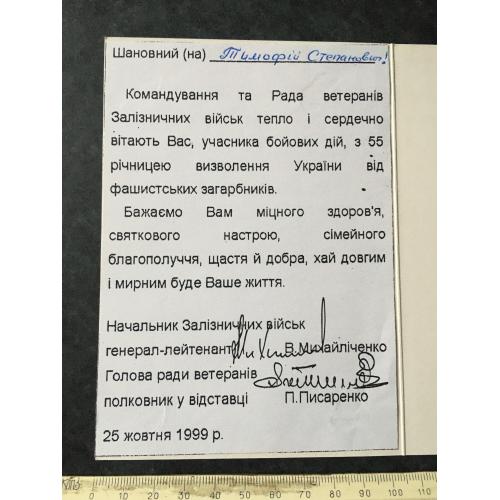 Шановний (на) Тимофій Степанович!
Командування та Рада ветеранів
Залізничних військ тепло і сердечно
вітають Вас, учасника бойових дій, з 55
річницею визволення України від
фашистських загарбників.
Бажаємо Вам міцного здоров'я,
святкового настрою, сімейного
благополуччя, щастя й добра, хай довгим
і мирним буде Ваше життя.
Начальник Залізничних військ
генерал-лейтенант В.Михайліченко
Голова ради ветеранів
полковник у відставці П.Писаренко
25 жовтня 1999 р.
10 20 30 40 50 60 70 80 90 100 110